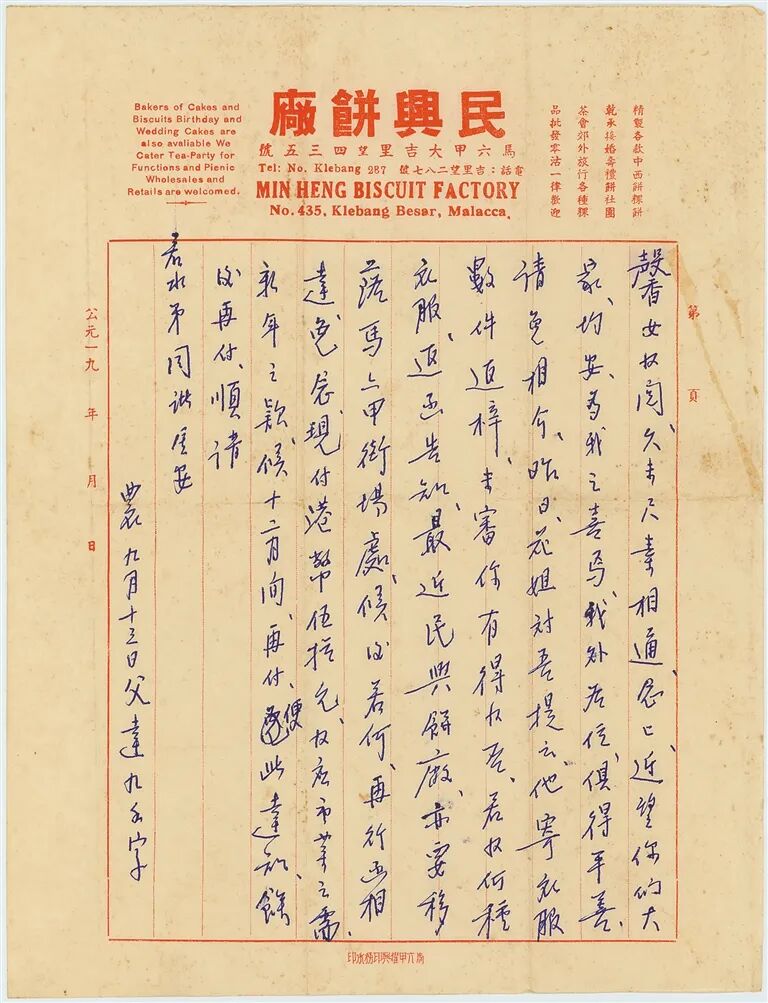 Bakers of Cakes and
Biscuits Birthday and
Wedding Cakes are
also avaliable We
Cater Tea-Party for
Functions and Pienic
Wholesales and
Retails are welcomed.
民興餅廠
馬六甲大吉里望四三五號
Tel: No. Klebang 287 電話：吉里望二八七號
MIN HENG BISCUIT FACTORY
No. 435, Klebang Besar, Malacca,
精製各欵中西餅粿餅
乾承接婚壽禮餅社團
茶會郊外旅行各種粿
品批發零沽一律歡迎
第 頁
馨女收閱、久未尺素相通、念之、近望你们大
家均安、為我之喜焉、我外居位、俱得平善、
請免相介、昨日花姐对吾提云、他寄衣服
數件返梓、未審你有得收否、若收何種
衣服、返函告知、最近民興餅廠、亦要移
落馬六甲街場處、候後若何、再行函相
達、免念、現付港幣伍拾元、收应市之需、
新年之款、候十二月间、再付、便此達知、餘
後再付、順請
若水弟同 安
農九月十三日父達九手字
公元一九 年 月 日
馬六甲耀興印務承印